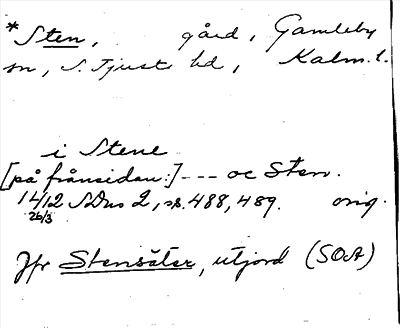 *Sten, gård, Gamleby
sn, S. Tjust hd, Kalm. l.
i Stene
[på frånsidan:] --- oc Sten.
14 26/3 12 SD ns 2, s. 488, 489. orig.
Jfr Stensäter, utjord (SOA)